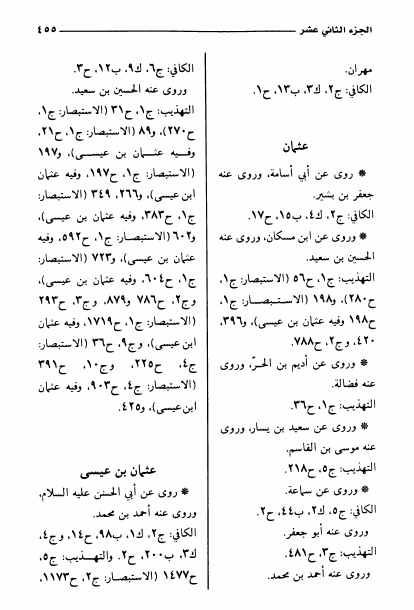 الجزء الثاني عشر
٤٥٥
مهران.
الكافي: ج٢، ك٣، ب١٣، ح١.
عثمان
* روى عن أبي أسامة، وروى عنه
جعفر بن بشير.
الكافي: ج٢، ك٤، ب١٥، ح١٧.
* وروى عن ابن مسكان، وروى عنه
الحسين بن سعيد.
التهذيب: ج١، ح٥٦ (الاستبصار: ج١،
ح٢٨٠)، و١٩٨ (الاستبصار: ج١،
ح١٩٨ وفيه عثمان بن عيسى)، و٣٩٦،
٤٢٠، وج٢، ح٧٨٨.
* وروى عن أديم بن الحرّ، وروى
عنه فضالة.
التهذيب: ج١، ح٣٦.
* وروى عن سعيد بن يسار، وروى
عنه موسى بن القاسم.
التهذيب: ج٥، ح٢١٨.
* وروى عن سماعة.
الكافي: ج٥، ك٢، ب٤٤، ح٢.
وروى عنه أبو جعفر.
التهذيب: ج٣، ح٤٨١.
وروى عنه أحمد بن محمد.
الكافي: ج٦، ك٩، ب١٢، ح٣.
وروى عنه الحسين بن سعيد.
التهذيب: ج١، ح٣١ (الاستبصار: ج١،
ح٢٧٠)، و٨٩ (الاستبصار: ج١، ح٢١،
وفيه عثمان بن عيسى)، و١٩٧
(الاستبصار: ج١، ح١٩٧، وفيه عثمان
ابن عيسى)، و٢٦٦، ٣٤٩ (الاستبصار:
ج١، ح٣٨٣، وفيه عثمان بن عيسى)،
و٦٠٢ (الاستبصار: ج١، ح٥٩٢، وفيه
عثمان بن عيسى)، و٧٢٣ (الاستبصار:
ج١، ح٦٠٤، وفيه عثمان بن عيسى)،
وج٢، ح٧٨٦ و٨٧٩، وج٣، ح٢٩٣
(الاستبصار: ج١، ح١٧١٩، وفيه عثمان
ابن عيسى)، وج٩، ح٣٦ (الاستبصار:
ج٤، ح٢٢٥، وج١٠، ح٣٩١
(الاستبصار: ج٤، ح٩٠٣، وفيه عثمان
ابن عيسى)، و٤٢٥.
عثمان بن عيسى
* روى عن أبي الحسن عليه السلام،
وروى عنه أحمد بن محمد.
الكافي: ج٢، ك١، ب٩٨، ح١٤، وج٤،
ك٣، ب٢٠٠، ح٢. والتهذيب: ج٥،
ح١٤٧٧ (الاستبصار: ج٢، ح١١٧٣،